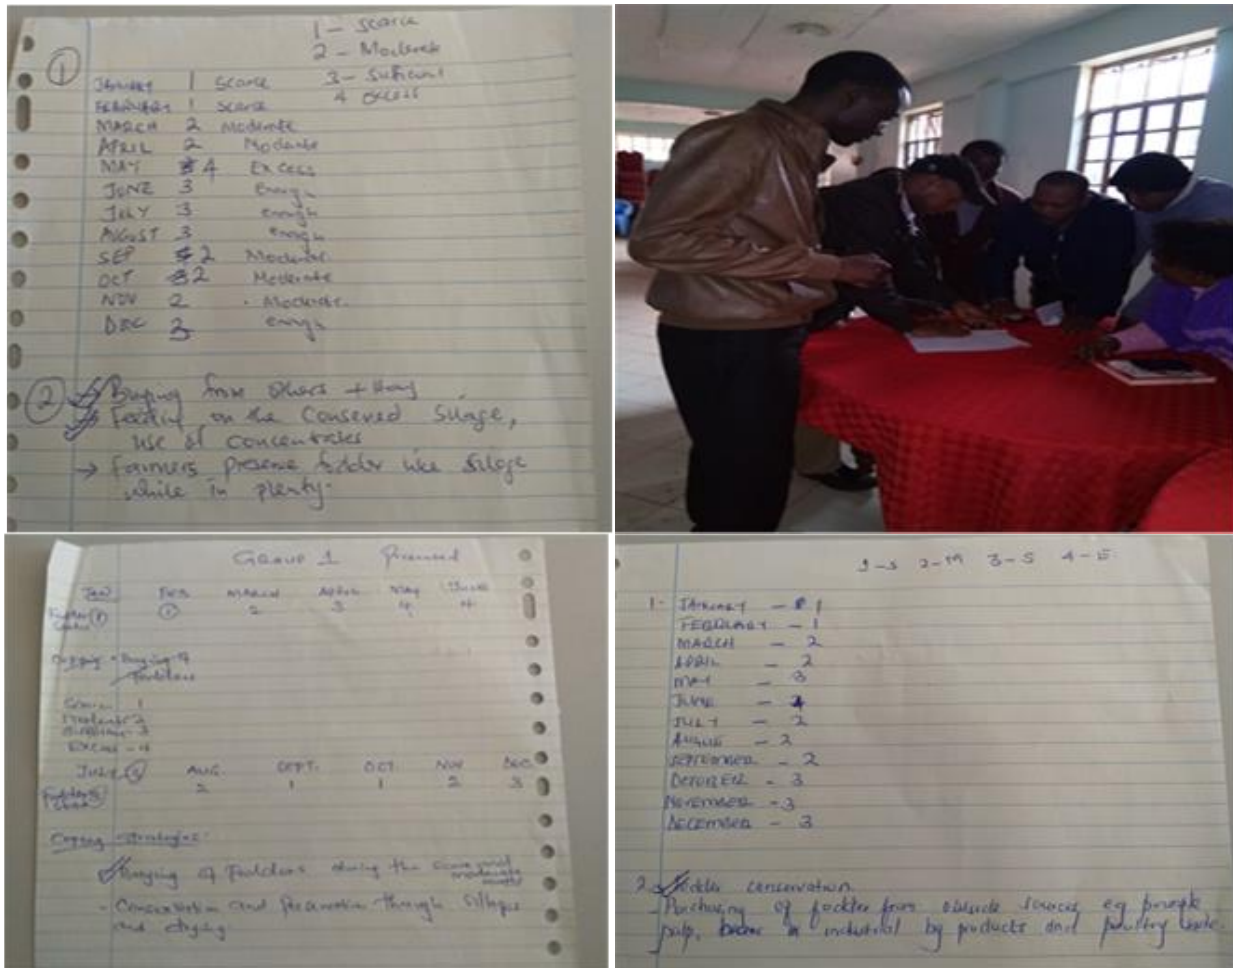 1 - Scarce
2 - Moderate
3 - Suficient
4 excess
1
JANUARY 1 Scarce
FEBRUARY 1 Scarce
MARCH 2 Moderate
APRIL 2 Moderate
MAY 4 Excess
JUNE 3
JULY 3
AUGUST 3
SEP 2 Moderate
OCT 2 Moderate
NOV 2 Moderate.
DEC 3
2 Buying from others + Hay
Feeding on the Conserved Silage,
use of concentrates
→ Farmers preserve fodder like silage
while in plenty.
GROUP 1
JAN FEB MARCH APRIL MAY JUNE
1 2 3 4 4
Buying of
fodders
1
2
3
Excess - 4
JULY AUG. SEPT. OCT NOV DEC
2 1 1 2 3
Coping strategies:
Buying of fodders during the
moderate
- Conservation and Preservation through sillages
and drying
1-S 2-M 3-S 4-E
1- JANUARY - 1
FEBRUARY - 1
MARCH - 2
APRIL - 2
MAY - 3
JUNE -
JULY - 2
- 2
SEPTEMBER - 2
OCTOBER - 3
NOVEMBER - 3
DECEMBER - 3
2 Fodder conservation
- Purchasing of fodder from outside sources eg
pulp, industrial by products and poultry waste.